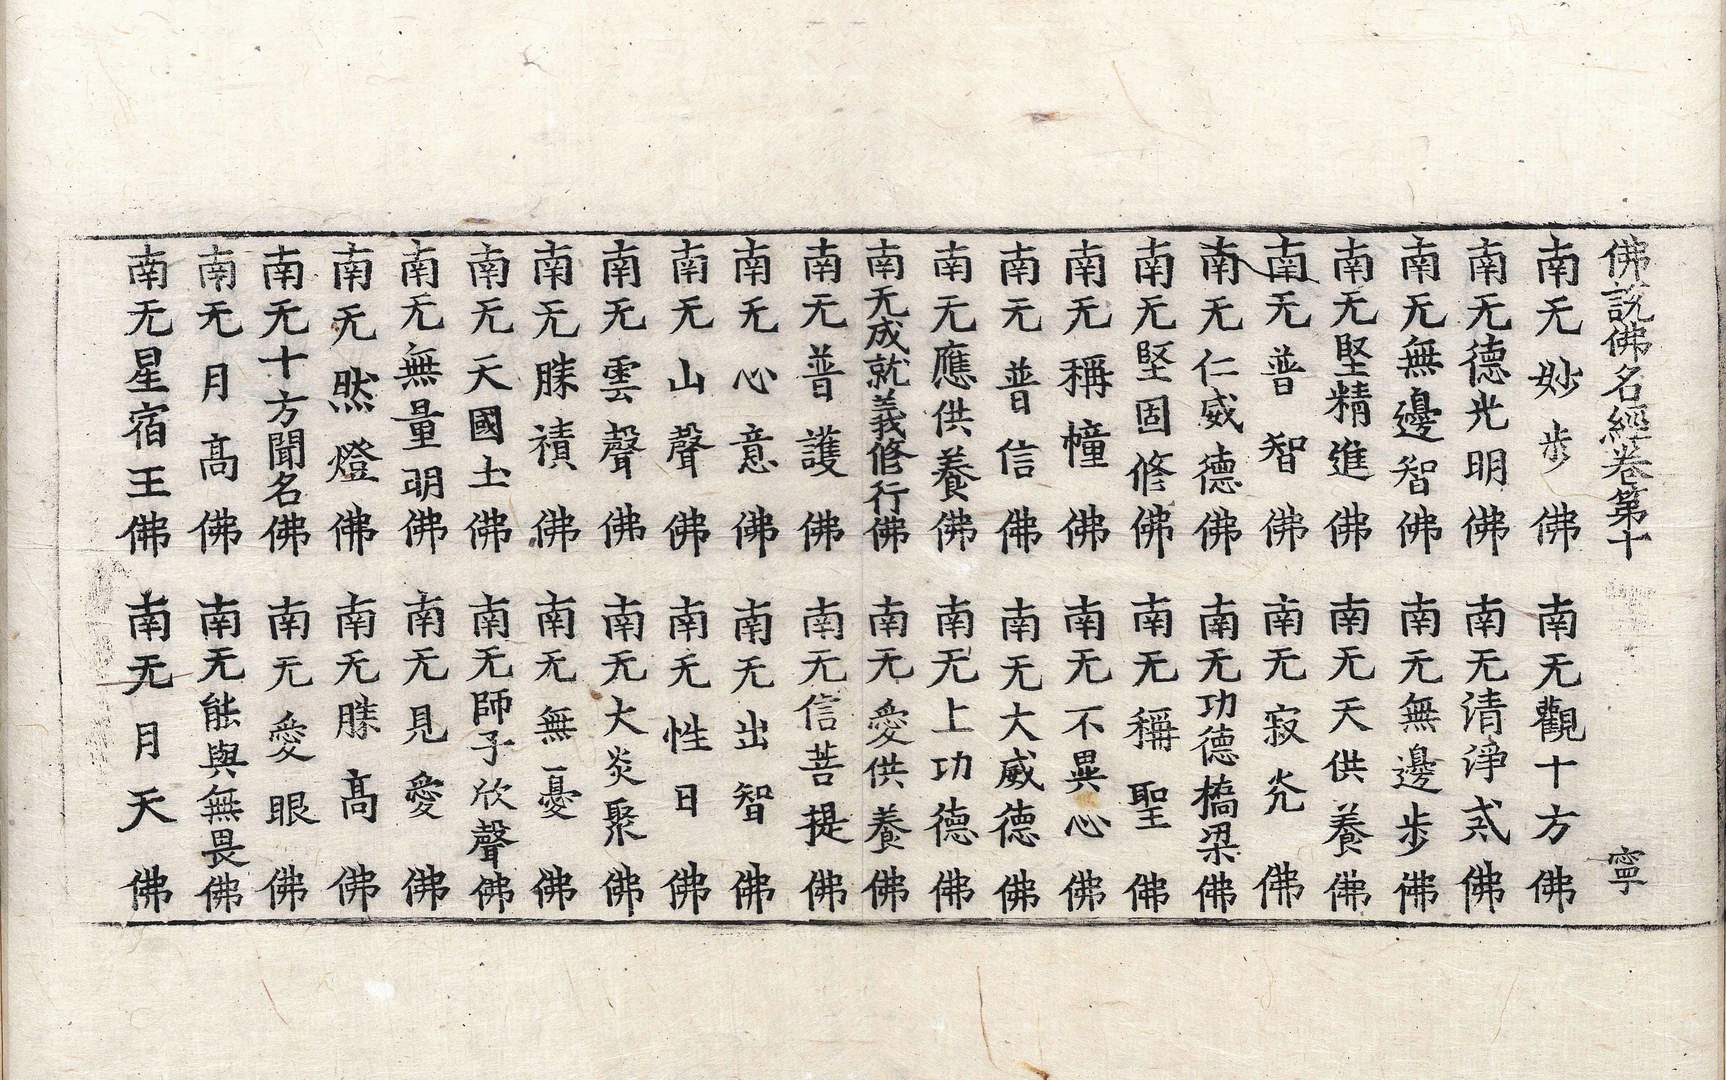 佛説佛名經卷第十 寧
南无妙步佛 南无觀十方佛
南无德光明佛 南无清淨佛
南无無邊智佛 南无無邊步佛
南无堅精進佛 南无天供養佛
南无普智佛 南无寂光佛
南无仁威德佛 南无功德橋梁佛
南无堅固修佛 南无稱聖佛
南无稱幢佛 南无不異心佛
南无普信佛 南无大威德佛
南无應供養佛 南无上功德佛
南无成就義修行佛 南无愛供養佛
南无普護佛 南无信菩提佛
南无心意佛 南无出智佛
南无山聲佛 南无性日佛
南无雲聲佛 南无大炎聚佛
南无勝積佛 南无無憂佛
南无天國土佛 南无師子欣聲佛
南无無量明佛 南无見愛佛
南无然燈佛 南无勝髙佛
南无十方聞名佛 南无愛眼佛
南无月髙佛 南无能與無畏佛
南无星宿王佛 南无月天佛